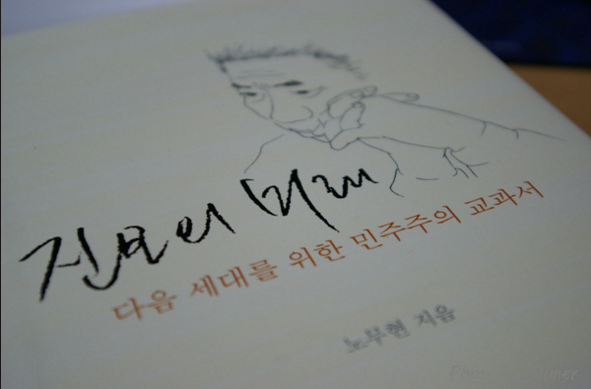 진보의 미래
다음 세대를 위한 민주주의 교과서
노무현 지음